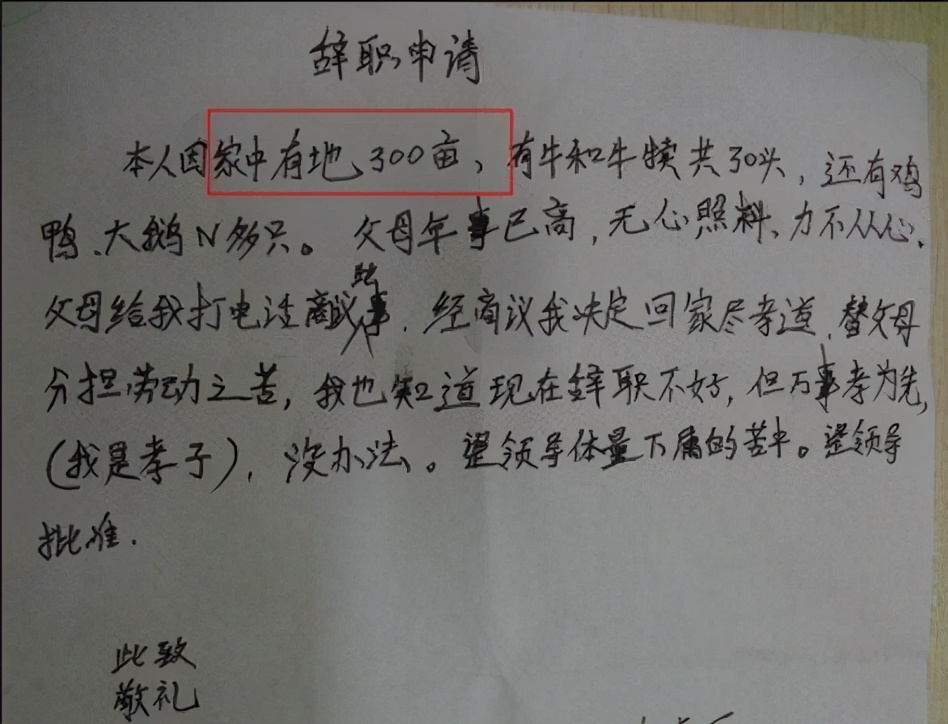 辞职申请
本人因家中有地300亩，有牛和牛犊共30头，还有鸡
鸭、大鹅N多只。父母年事已高，无心照料、力不从心。
父母给我打电话商议此事，经商议我决定回家尽孝道，替父母
分担劳动之苦，我也知道现在辞职不好，但万事孝为先，
（我是孝子），没办法。望领导体量下属的苦中。望领导
批准.
此致
敬礼